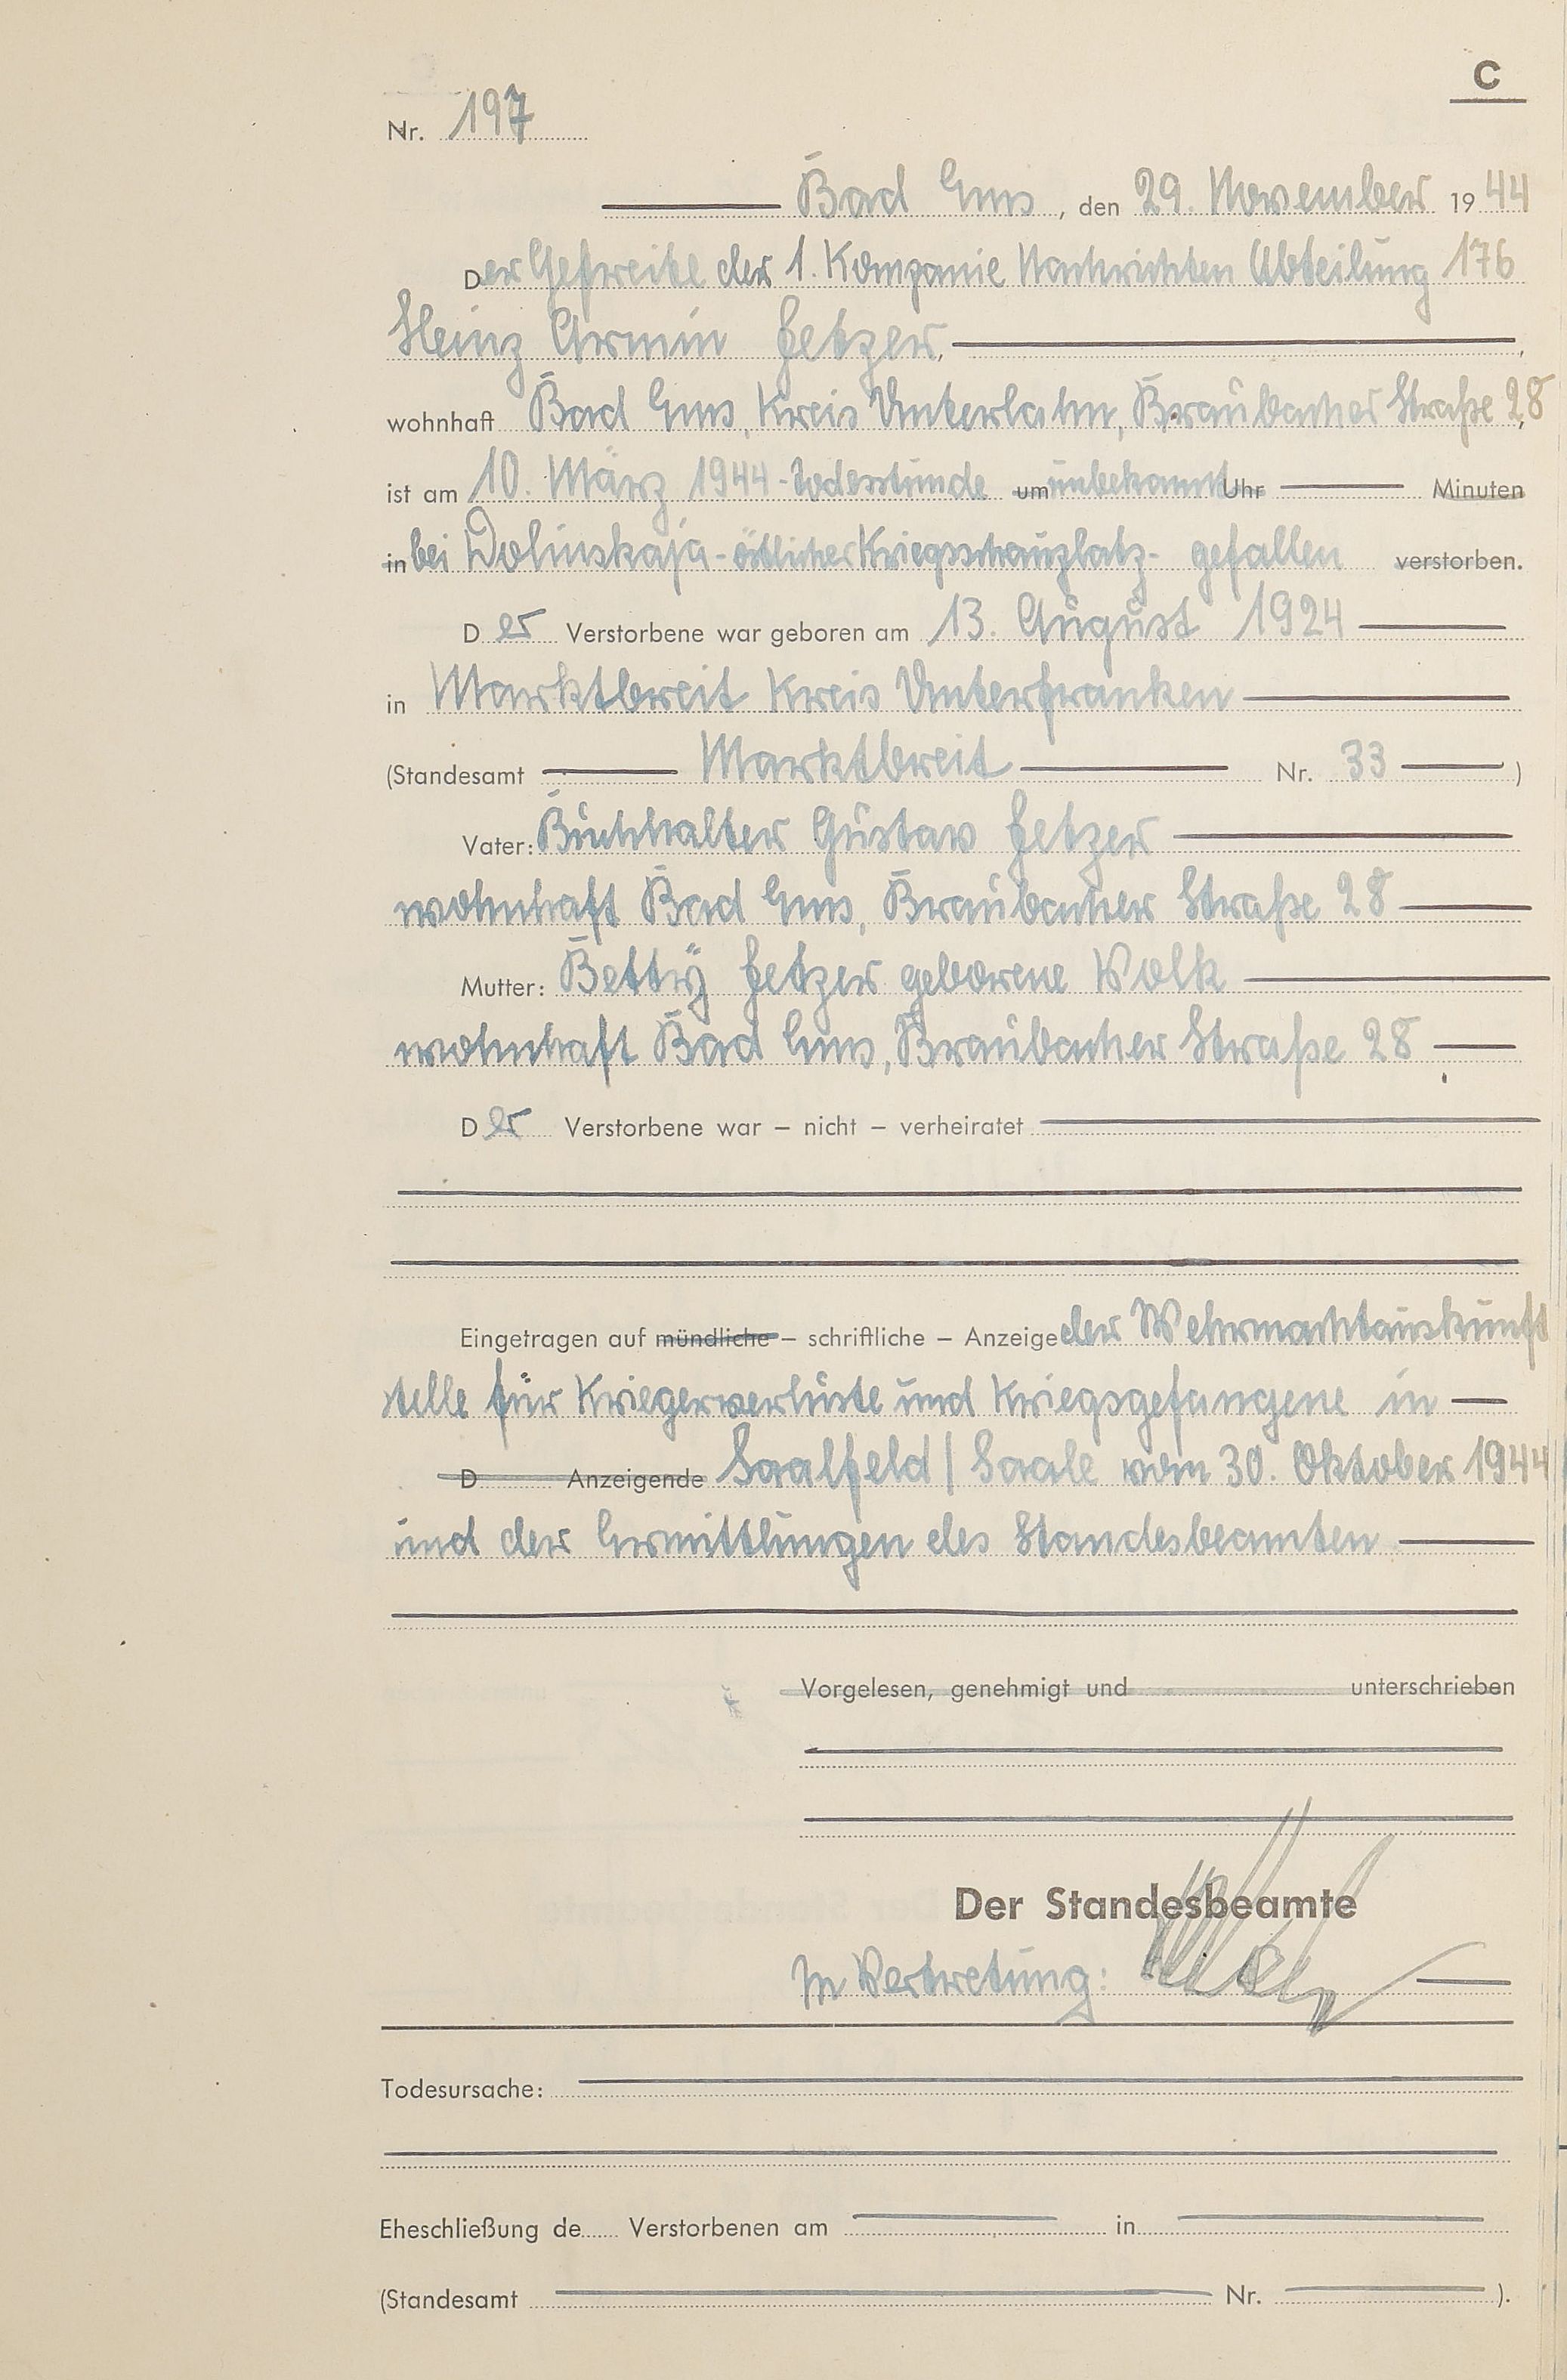 C
Nr. 197
Bad Ems, den 29. November 1944
Der Gefreite der 1. Kompanie Nachrichten Abteilung 176
Heinz Armin Fetzer,
wohnhaft Bad Ems, Kreis Unterlahn, Braubacher Straße 28,
ist am 10. März 1944 - Todesstunde um unbekannt Uhr Minuten
in bei Dolinskaja - östlicher Kriegsschauplatz - gefallen verstorben.
Der Verstorbene war geboren am 13. August 1924
in Marktbreit Kreis Unterfranken
(Standesamt Marktbreit Nr. 33)
Vater: Buchhalter Gustav Fetzer
wohnhaft Bad Ems, Braubacher Straße 28
Mutter: Betty Fetzer geborene Volk
wohnhaft Bad Ems, Braubacher Straße 28
Der Verstorbene war – nicht – verheiratet
Eingetragen auf mündliche – schriftliche – Anzeige der Wehrmachtauskunft
stelle für Kriegerverluste und Kriegsgefangene in
D Anzeigende Saalfeld / Saale vom 30. Oktober 1944
und der Ermittlungen des Standesbeamten
Vorgelesen, genehmigt und unterschrieben
Der Standesbeamte
In Vertretung:
Todesursache:
Eheschließung de Verstorbenen am in
(Standesamt Nr. ).